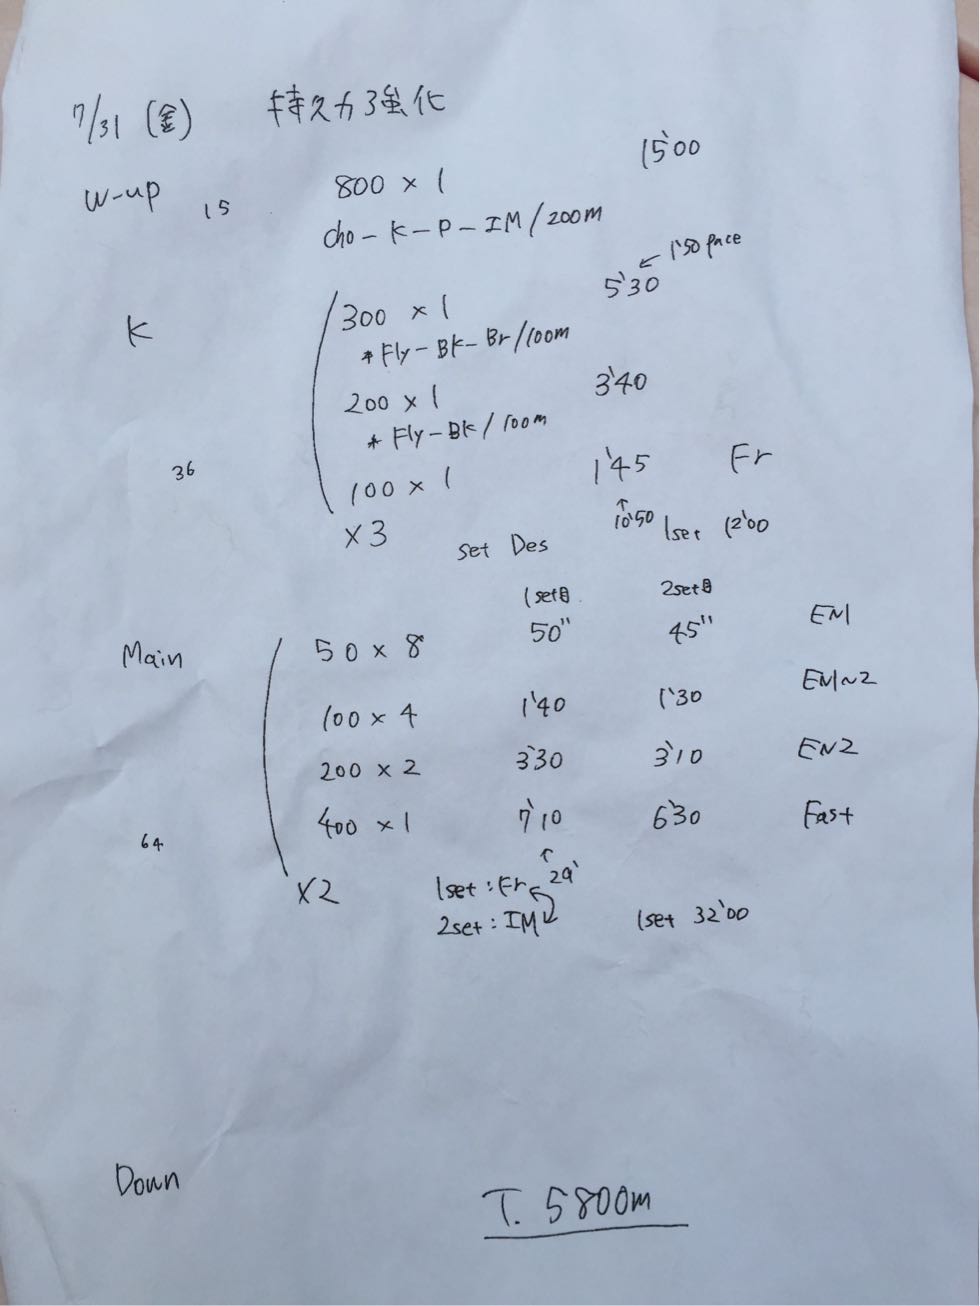 7/31 (金) 持久力強化
W-up 15 800 × 1 15'00
cho-K-P-IM/200m
← 1'50 pace
K 300 × 1 5'30
* Fly-BK-Br/100m
200 × 1 3'40
* Fly-BK/100m
36 100 × 1 1'45 Fr
×3 set Des ↑ 10'50 1set 12'00
1set目 2set目
Main 50 × 8 50" 45" EN1
100 × 4 1'40 1'30 EN1~2
200 × 2 3'30 3'10 EN2
64 400 × 1 7'10 6'30 Fast
×2 1set:Fr ↑ 29'
2set:IM 1set 32'00
Down T. 5800m